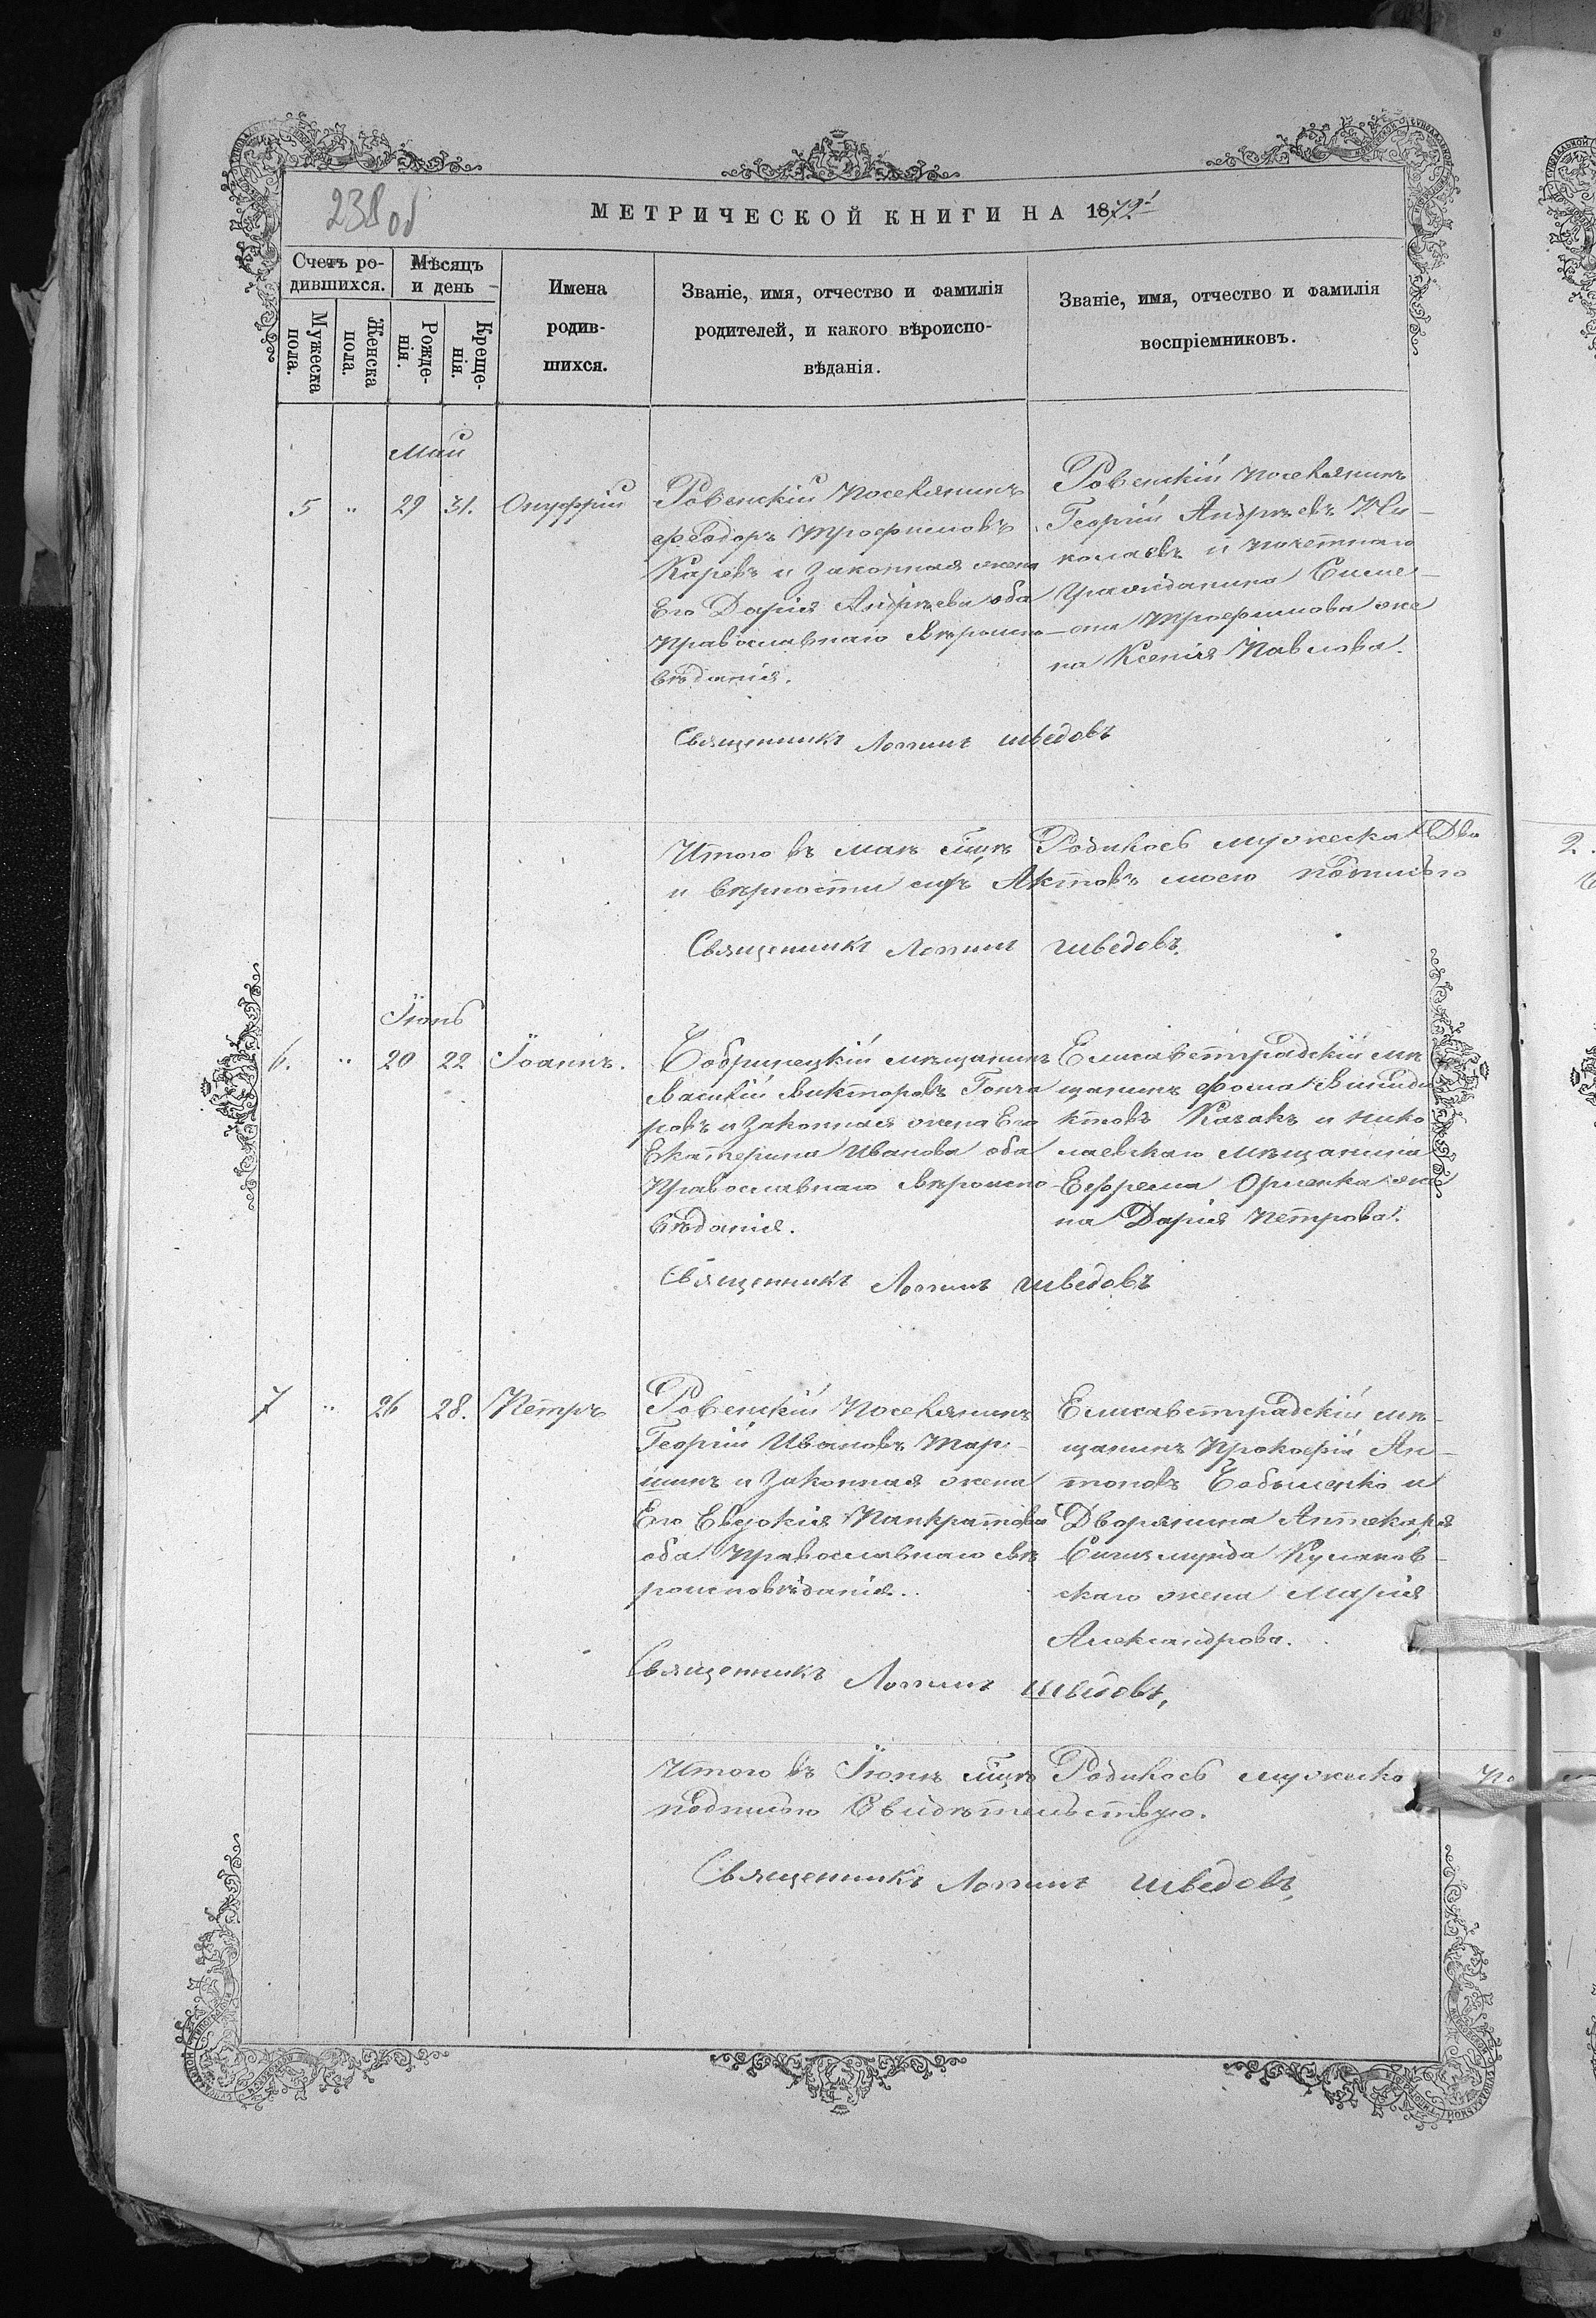 238 об
МЕТРИЧЕСКОЙ КНИГИ НА 1872й
Счетъ ро-
дившихся.
Мѣсяцъ
и день
Мужеска
пола.
Женска
пола.
Рожде-
нія.
Креще-
нія.
Имена
родив-
шихся.
Званіе, имя, отчество и фамилія
родителей, и какого вѣроиспо-
вѣданія.
Званіе, имя, отчество и фамилія
воспріемниковъ.
Май
5 " 29 31. Онуфрій
Ровенскій поселянинъ
Феодоръ Трофимовъ
Каревъ и законная жена
Его Дарія Андрѣева оба
православнаго вѣроиспо-
вѣданія.
Ровенскій поселянинъ
Георгій Андрѣевъ Ни-
колаевъ и почетнаго
гражданина Симе-
она Трофимова же
на Ксенія Павлова.
Священникъ Логгинъ Шведовъ
Итого въ маѣ мцѣ Родилось мужеска Два
и вѣрность сихъ Актовъ моею подписью
Священникъ Логгинъ Шведовъ.
Іюнь
6. " 20 22 Іоаннъ.
Бобринецкій мѣщанинъ
Василій Викторовъ Гонча
ровъ и законная жена Его
Екатерина Иванова оба
православнаго вѣроиспо
вѣданія.
Елисаветградскій мѣ
щанинъ Фома Венеди
ктовъ Казакъ и нико
лаевскаго мѣщанина
Ефрема Орленка же
на Дарія Петрова.
Священникъ Логгинъ Шведовъ
7 " 26 28. Петръ
Ровенскій поселянинъ
Георгій Ивановъ Тар-
шинъ и законная жена
Его Евдокія Панкратова
оба православнаго вѣ
роисповѣданія.
Елисаветградскій мѣ-
щанинъ Прокофій Ан-
тоновъ и
Дворянина Аптекаря
Сигизмунда
скаго жена Марія
Александрова.
Священникъ Логгинъ Шведовъ,
Итого въ Іюнѣ мцѣ Родилось мужеска
подписью Свидѣтельствую.
Священникъ Логгинъ Шведовъ,